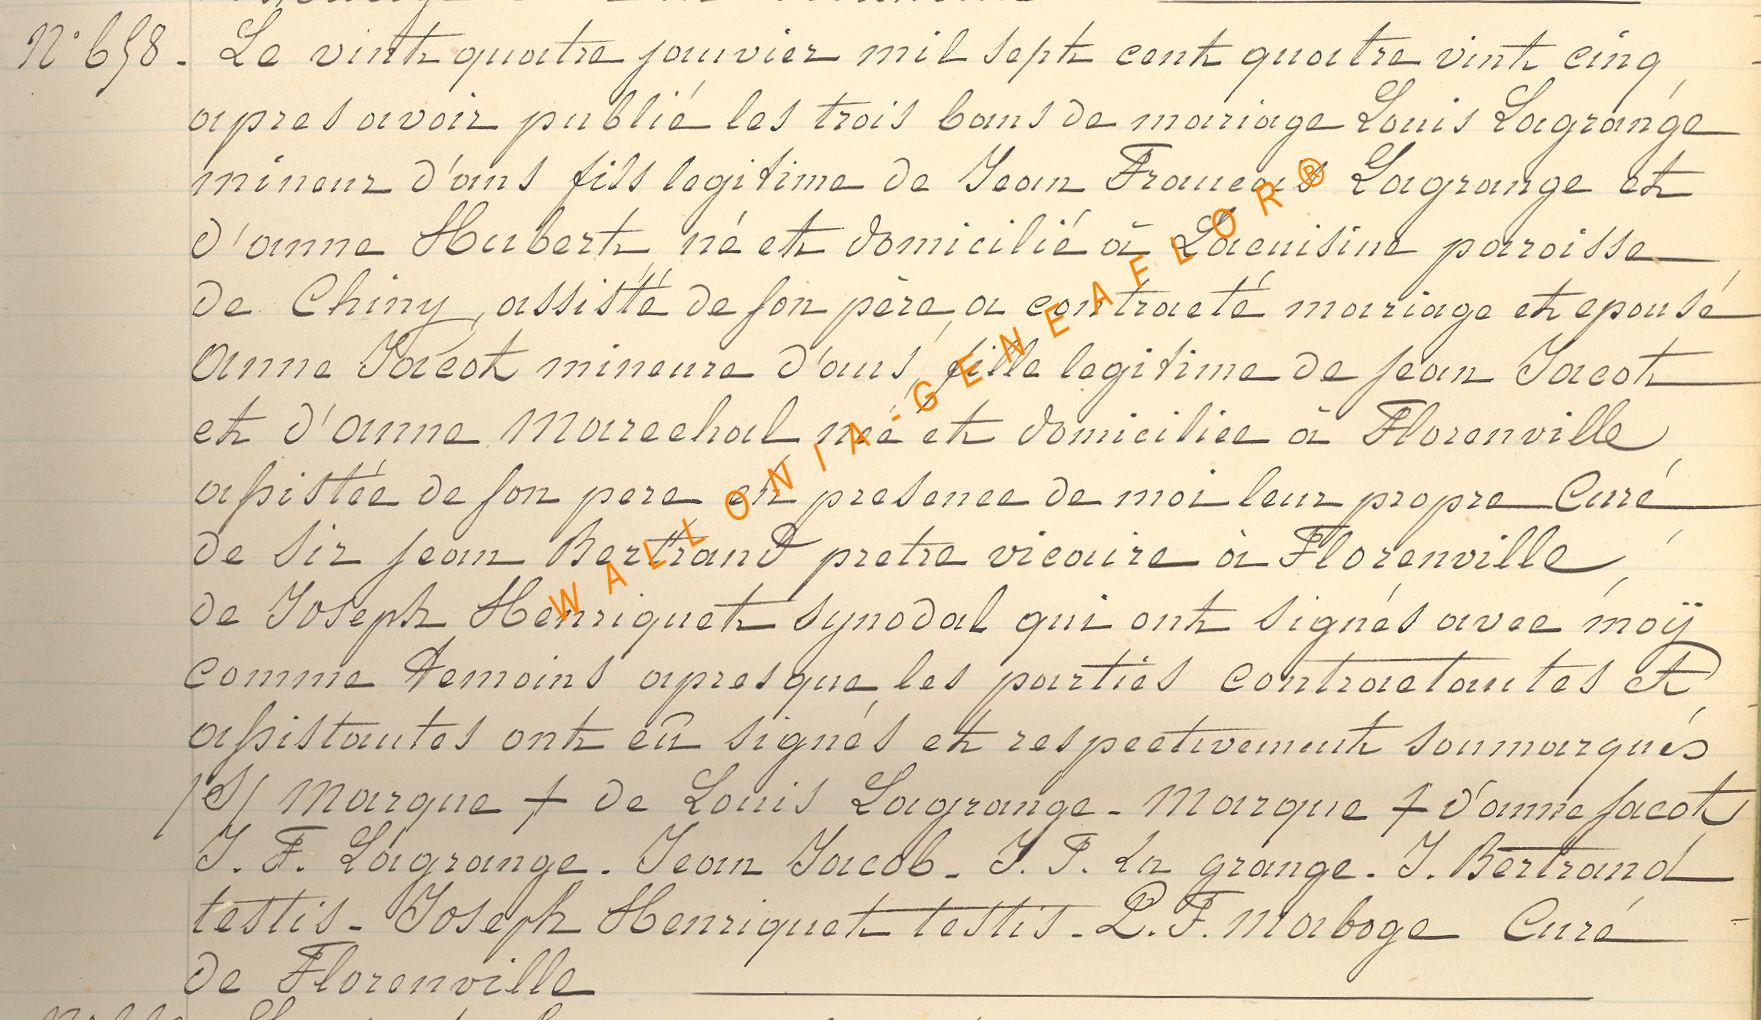 N° 658. Le vint quatre janvier mil sept cent quatre vint cinq
apres avoir publié les trois bans de mariage Louis Lagrange
mineur d'ans fils legitime de Jean Francois Lagrange et
d'anne Hubert, né et domicilié à Lacuisine paroisse
de Chiny, assisté de son père, a contracté mariage et epousé
Anne Jacot mineure d'ans, fille legitime de Jean Jacot
et d'anne Marechal née et domiciliee à Florenville,
assistée de son pere en presence de moi leur propre Curé
de Sir Jean Bertrand pretre vicaire à Florenville,
de Joseph Henriquet synodal qui ont signés avec moÿ
comme temoins apres que les parties contractantes et
assistantes ont eû signés et respectivement soumarqués
/S/ Marque + de Louis Lagrange - Marque + d'anne Jacot
J. F. Lagrange. Jean Jacob. J. P. La grange. J. Bertrand
testis. Joseph Henriquet testis. L. F. Maboge Curé
de Florenville
WALLONIA-GENEAFLOR®